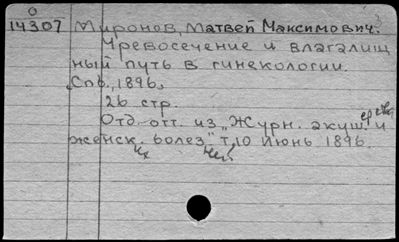 0
14307 Миронов, Матвей Максимович.
Чревосечение и влагалищ
ный путь в гинекологии.
Спб., 1896,
26 стр.
Отд. отт. из „Журн. акуш. и
женск. болез." Т.10 Июнь 1896.